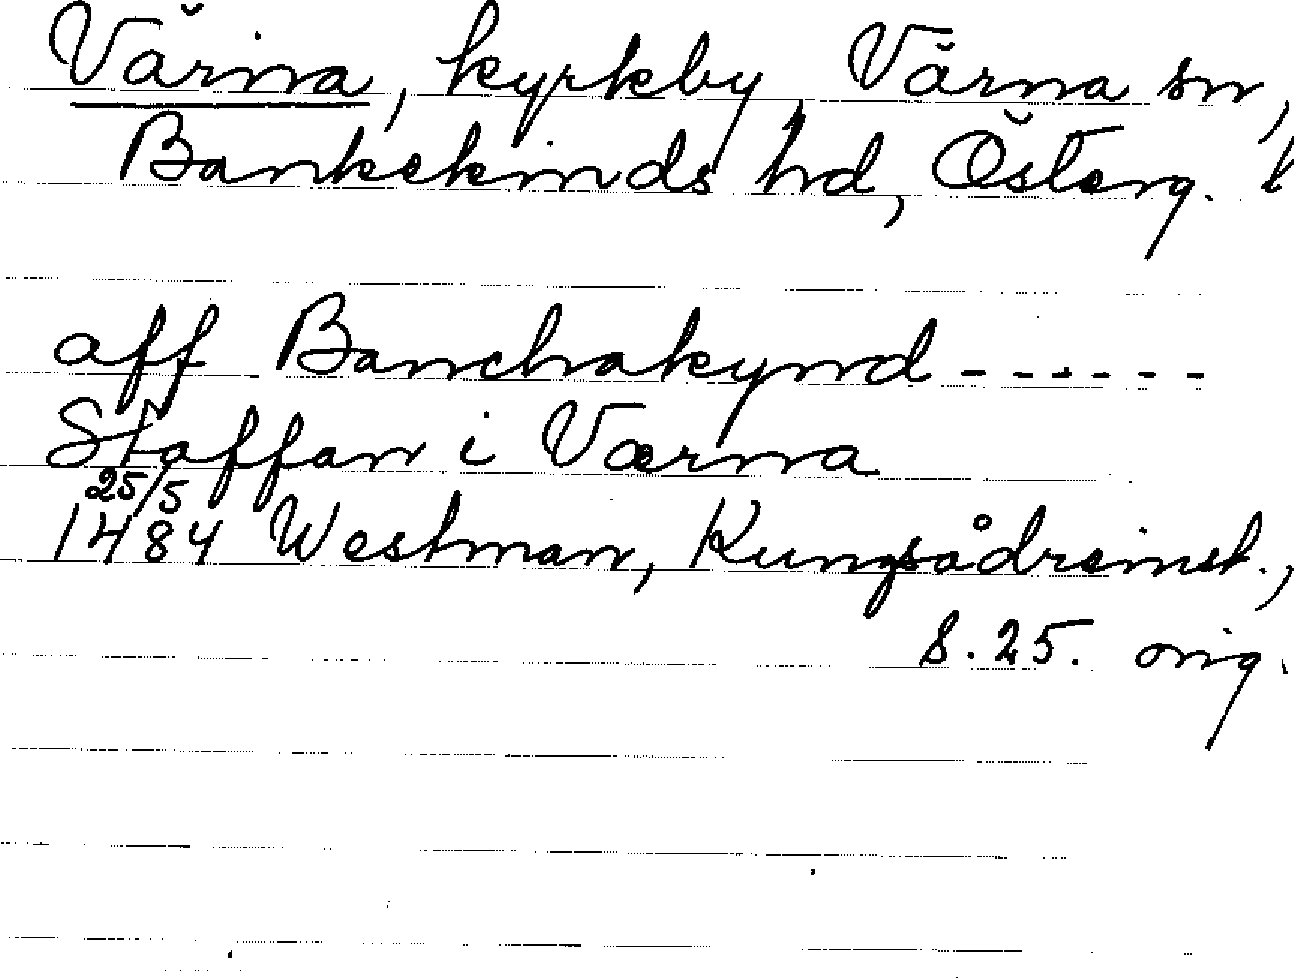 Värna, kyrkby, Värna sn,
Bankekinds hd, Österg. l
aff Banchakynd ------
Staffan i Værna
25/5
1484 Westman, Kungsådreinst.,
s. 25. orig.